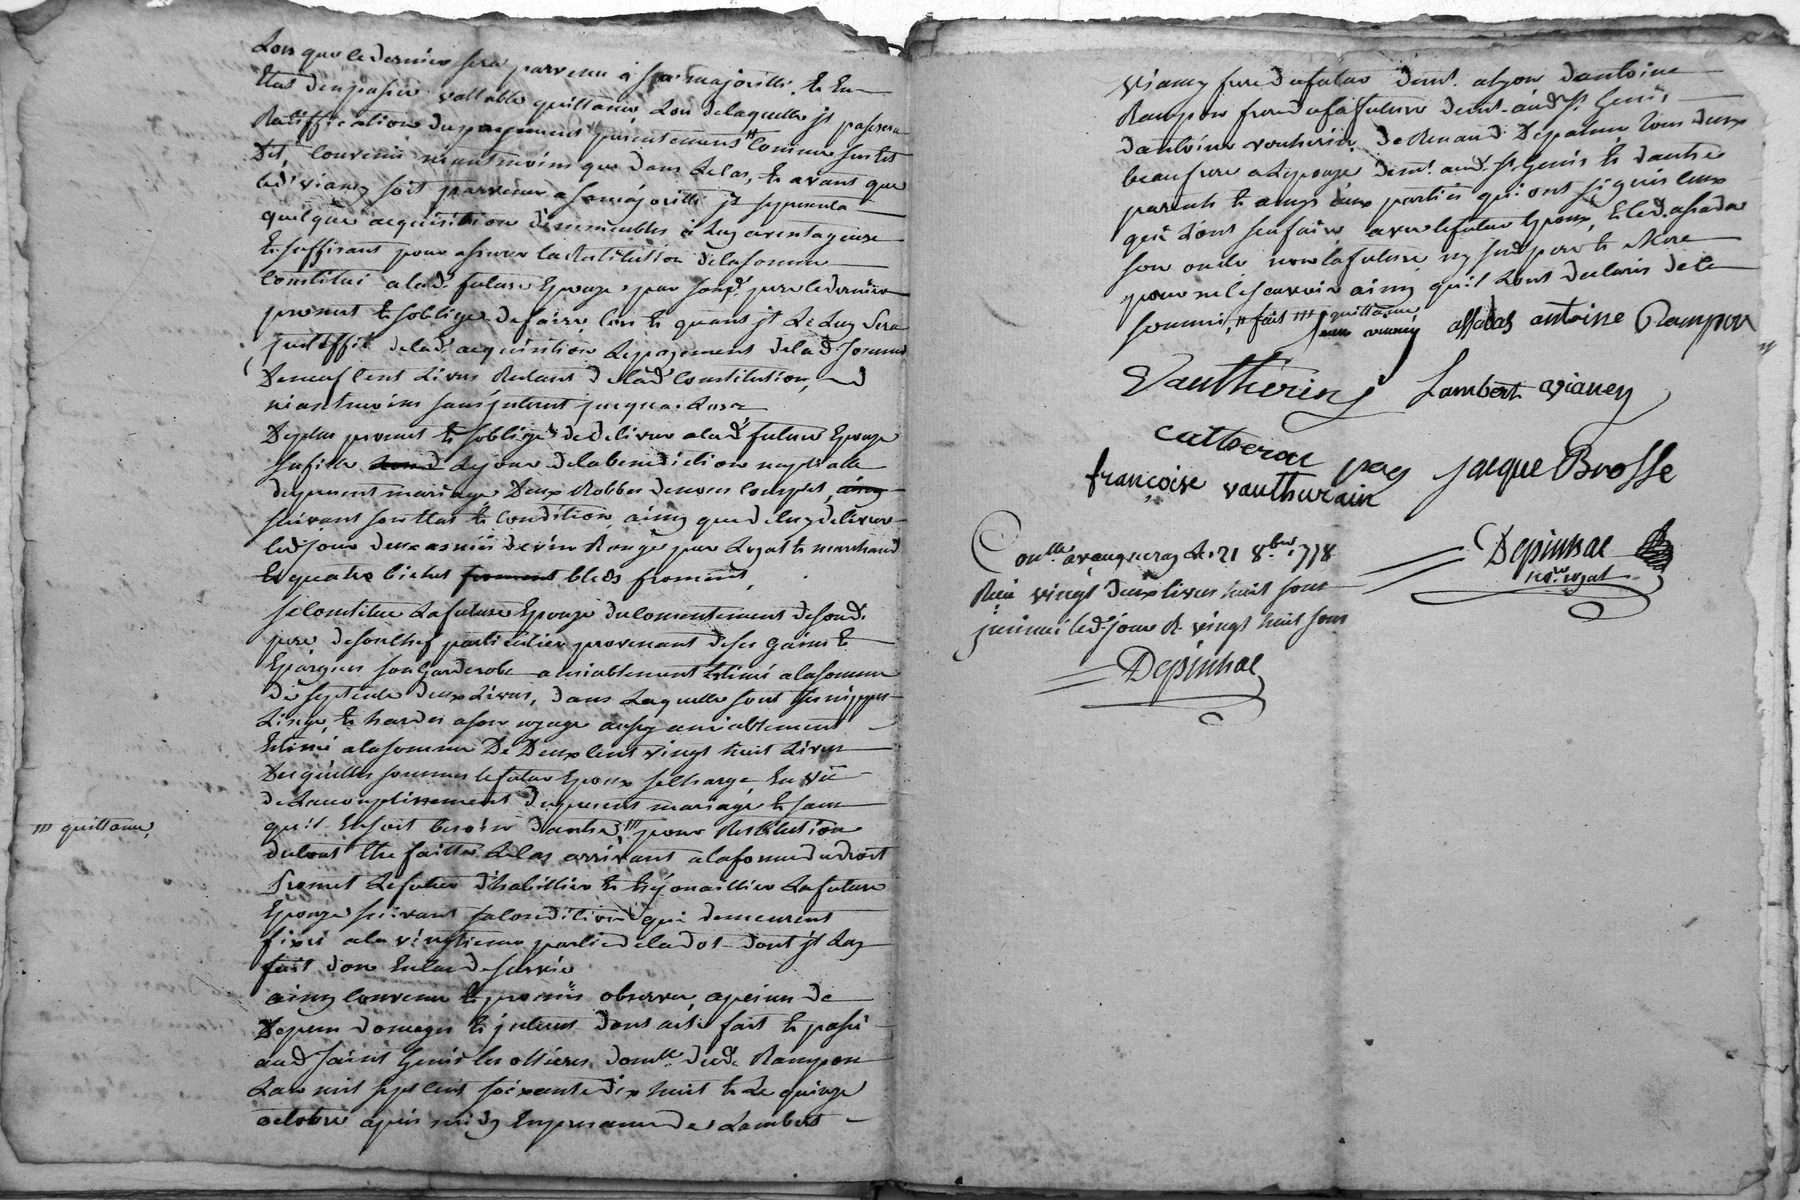 Lors que le dernier sera parvenu a sa majoritté, et en
état d'en passer vallable quittance, Lors de laquelle jl passera
Ratiffication du payement presentement comme sus est
Dit, convenu neantmoins que dans le cas, et avant que
led. viany soit parvenu a sa majoritté jl se presenta
quelque acquisition d'immeubles à luy aventageuse
et suffisant pour assurer la Restitution de la somme
constitué a lad. future Epouze, par sond. pere le dernier
promet et s'oblige de faire lors et quant jl le luy sera
justiffié de lad. acquisition le payement de lad. somme
De neuf cent Livres Restant de lad. constitution,
neantmoins sans jnterest jusques Lors
De plus promet et s'oblige de delivrer a lad. future Epouze
sa fille le jour de la benediction nuptialle
du present mariage Deux Robbes de noces complet,
suivant son état et condition, ainsy que de luy delivrer
led. jour deux asnées de vin Rouge pur Loyal et marchand
et quatre bichet bleds froment,
se constitue La future Epouze du consentement de sond.
pere de son chef particulier provenant de ses gains et
Epargnes son garderobe amiablement estimé a la somme
de septente deux Livres, dans laquelle sont ses nippes
Linge, et hardes a son uzage aussy amiablement
Estimé a la somme De Deux cent vingt huit Livres
Desquelles sommes le futur Epoux se charge en vüe
de l'accomplissement du present mariage et sans
qu'il en soit besoin d'autre, /// pour Restitution
du tout etre faitte le cas arrivant a la forme du droit
Promet le futur d'habillier et enjouaillier La future
Epouze suivant sa condition qui demeurent
fixé a la vingtieme partie de la dot dont jl luy
fait don en cas de survie
ainsy convenu et promis observer, a peine de
Depens domages et jnterest dont acte fait et passé
aud. Saint Genis les ollieres, domlle dud. Rampon
L'an mil sept cent soixante dix huit et Le quinze
octobre apres midy En presence de Lambert
/// quittance,
viany frere du futur demt. a lyon d'antoine
Rampon frere de la future demt. aud. St. Genis
d'antoine vautherin, de Renaud Depalme tous deux
beau frere a L'epouze demt. aud. St. Genis et d'autres
parents et amys deux parties qui ont signés ceux
qui L'ont sçu faire avec le futur Epoux, et led. assada
son oncle non la future ny ses pere et Mere
pour ne le sçavoir ainsy qu'il L'ont declarés de ce
sommés, // fait /// quittance,
Jean viany assadas antoine Rampon
Vautherin Lambert vianey
catherine pey Jacque Brosse
françoise vautherain
Conllé a vaugneray Le 21 8bre 1778
Reçu vingt deux livres huit sous
jnsinué led. jour R. vingt huit sous
Depinhac
Depinhac
nore royal